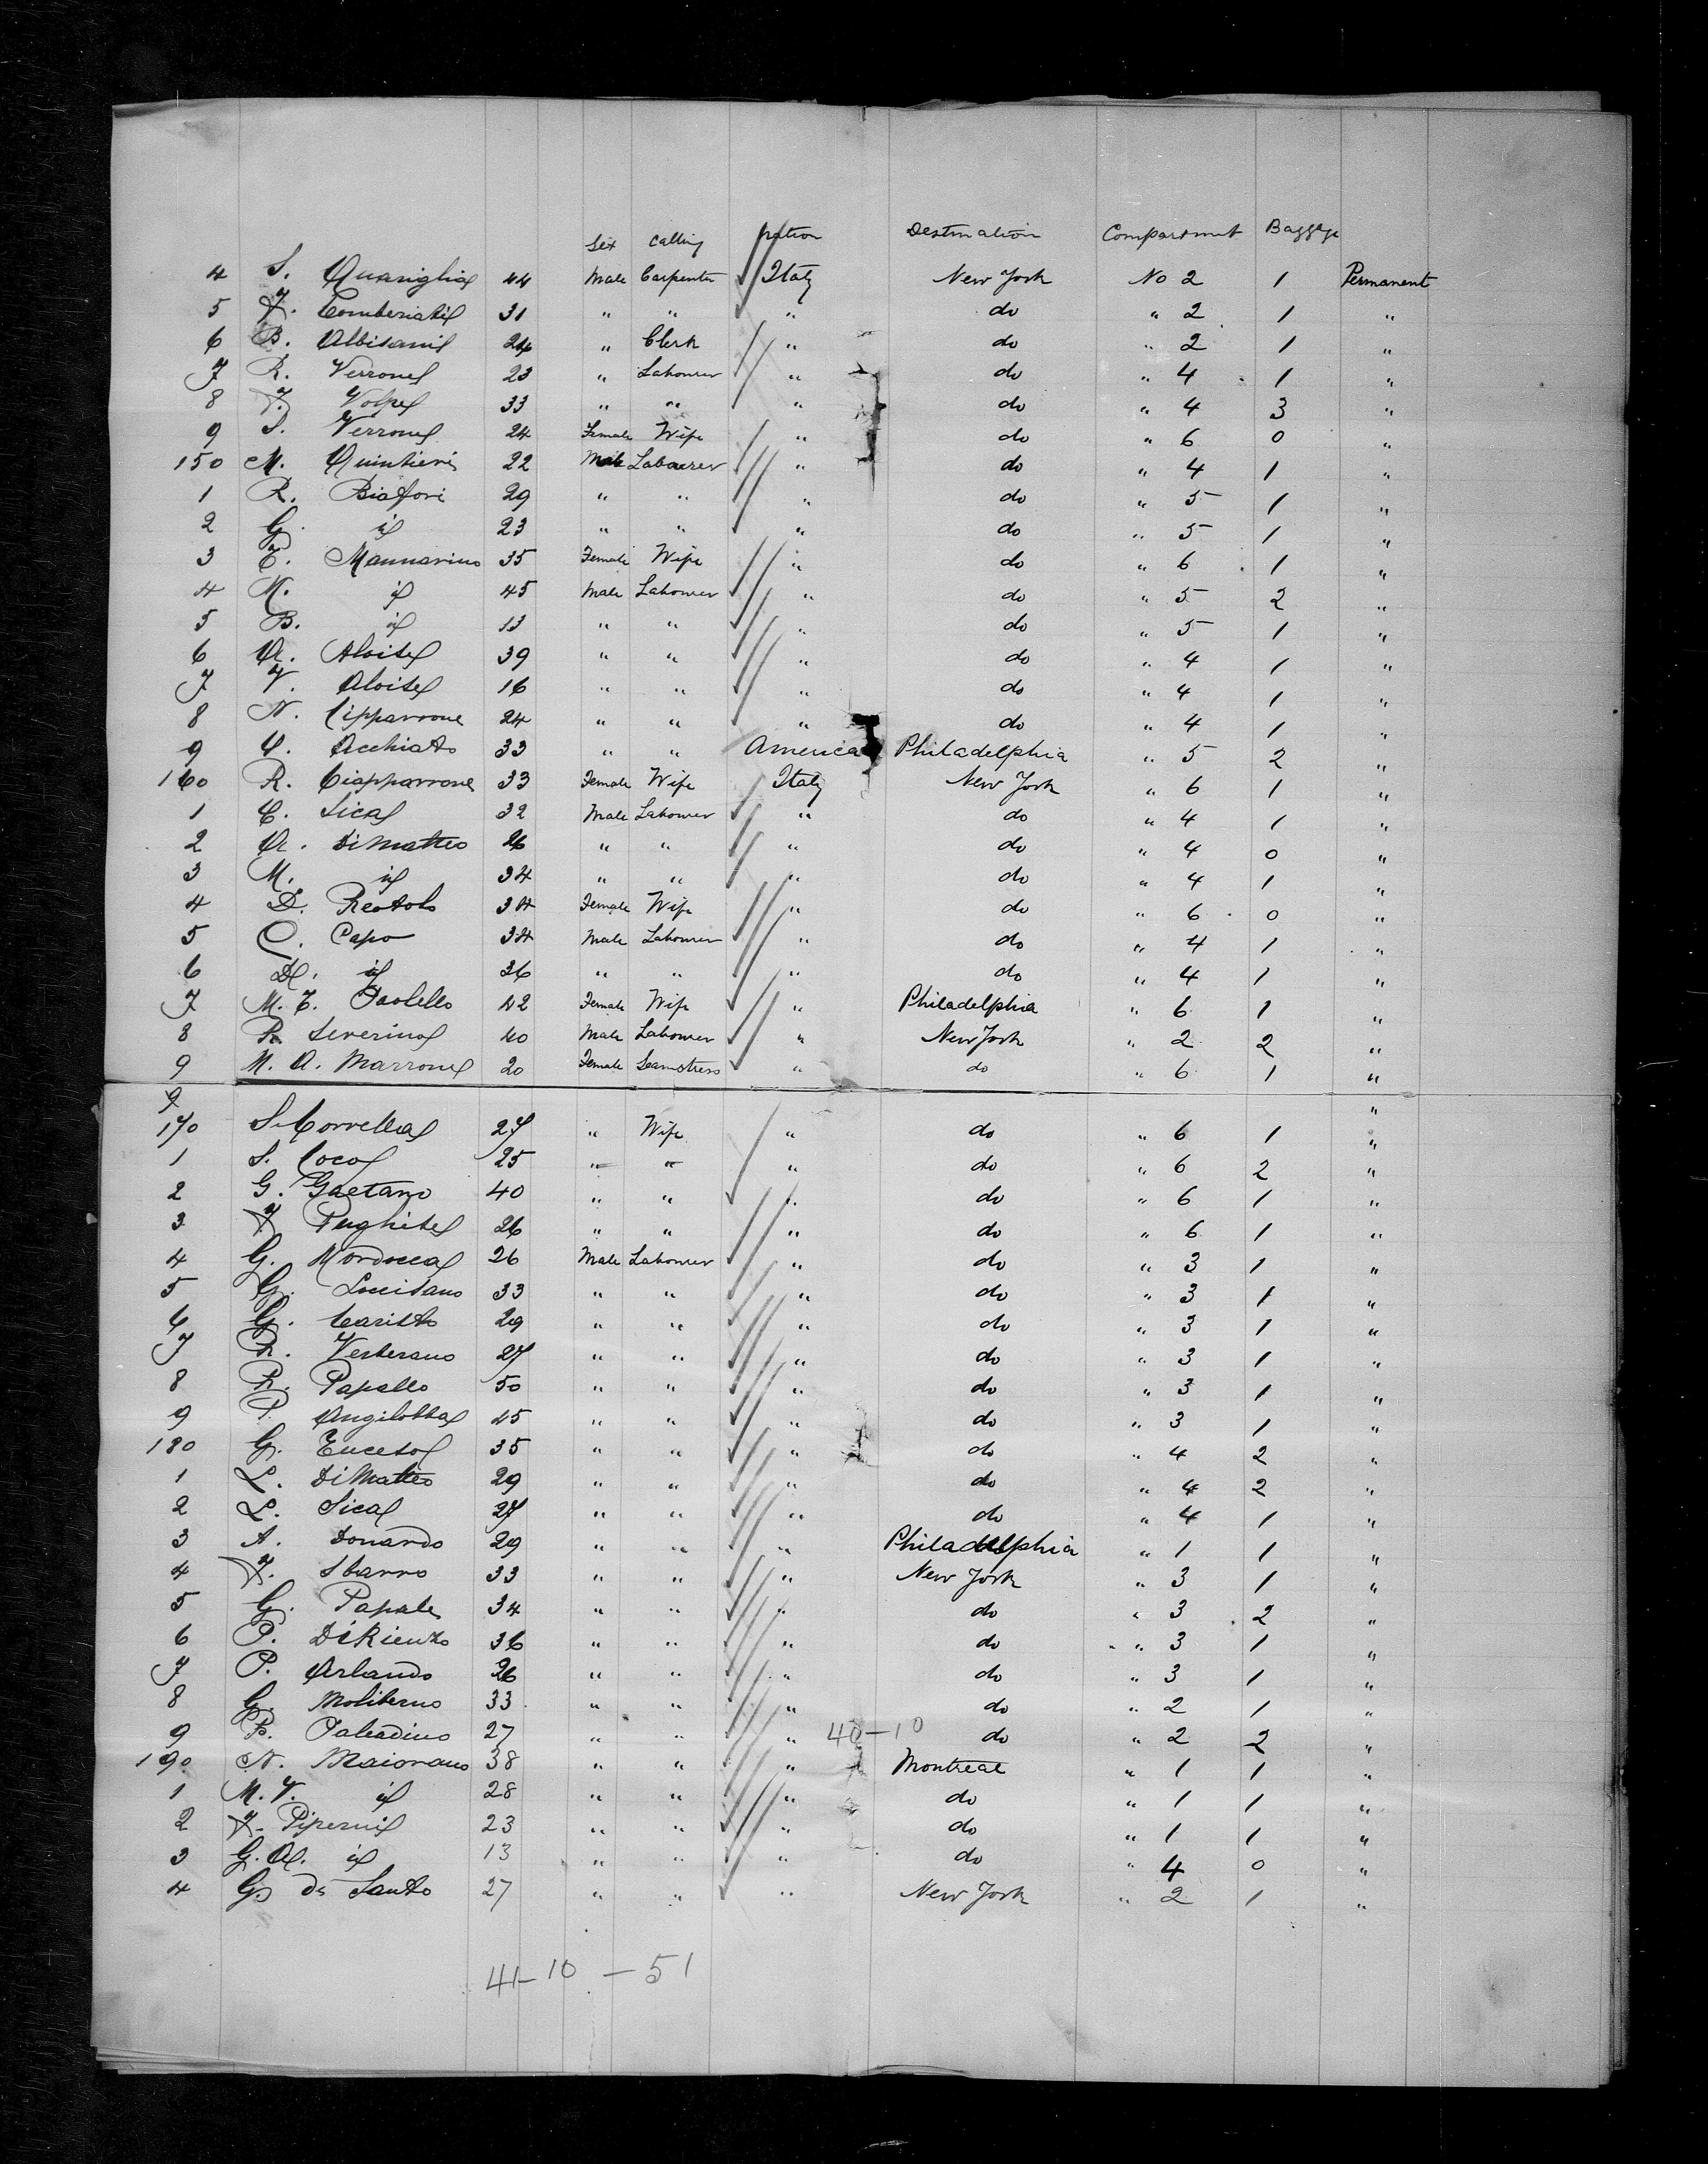 Sex Calling Nation Destination Compartment Baggage
4 S. Quariglia 44 Male Carpenter Italy New York No 2 1 Permanent
5 F. 31 " " " do " 2 1 "
6 B. Albisani 24 " Clerk " do " 2 1 "
7 R. Verrone 23 " Labourer " do " 4 1 "
8 F. Volpe 33 " " " do " 4 3 "
9 S. Verrone 24 Female Wife " do " 6 0 "
150 M. Quintieri 22 Male Labourer " do " 4 1 "
1 R. Biafori 29 " " " do " 5 1 "
2 G. id 23 " " " do " 5 1 "
3 C. Mannarino 35 Female Wife " do " 6 1 "
4 N. id 45 Male Labourer " do " 5 2 "
5 B. id 13 " " " do " 5 1 "
6 A. Aloise 39 " " " do " 4 1 "
7 V. Aloise 16 " " " do " 4 1 "
8 N. Cipparrone 24 " " " do " 4 1 "
9 Acchiato 33 " " America Philadelphia " 5 2 "
160 R. Ciapparrone 33 Female Wife Italy New York " 6 1 "
1 C. Sica 32 Male Labourer " do " 4 1 "
2 A. DiMatteo 26 " " " do " 4 0 "
3 M. id 34 " " " do " 4 1 "
4 D. 34 Female Wife " do " 6 0 "
5 C. Capo 34 Male Labourer " do " 4 1 "
6 id 36 " " " do " 4 1 "
7 M. C. Paolello 42 Female Wife " Philadelphia " 6 1 "
8 R. Severino 40 Male Labourer " New York " 2 2 "
9 M. A. Marrone 20 Female Seamstress " do " 6 1 "
9 "
170 S. Corrella 27 " Wife " do " 6 1 "
1 S. Coco 25 " " " do " 6 2 "
2 G. Gaetano 40 " " " do " 6 1 "
3 F. Pughise 26 " " " do " 6 1 "
4 G. Mordocca 26 Male Labourer " do " 3 1 "
5 G. Loccisano 33 " " " do " 3 1 "
6 G. Caristo 29 " " " do " 3 1 "
7 R. Verterano 27 " " " do " 3 1 "
8 R. Papallo 50 " " " do " 3 1 "
9 P. Angilotta 45 " " " do " 3 1 "
180 G. 35 " " " do " 4 2 "
1 L. DiMatteo 29 " " " do " 4 2 "
2 L. Sica 27 " " " do " 4 1 "
3 A. Donardo 29 " " " Philadelphia " 1 1 "
4 F. Sbarro 33 " " " New York " 3 1 "
5 G. Papale 34 " " " do " 3 2 "
6 P. DiRienzo 36 " " " do " 3 1 "
7 P. Orlando 26 " " " do " 3 1 "
8 G. Moliterno 33 " " " do " 2 1 "
9 B. Paladino 27 " " " 40-10 do " 2 2 "
190 N. Maiorano 38 " " " Montreal " 1 1 "
1 M. V. id 28 " " " do " 1 1 "
2 F. Piperni 23 " " " do " 1 1 "
3 G. A. id 13 " " " do " 4 0 "
4 G. De Santo 27 " " " New York " 2 1 "
41-10-51